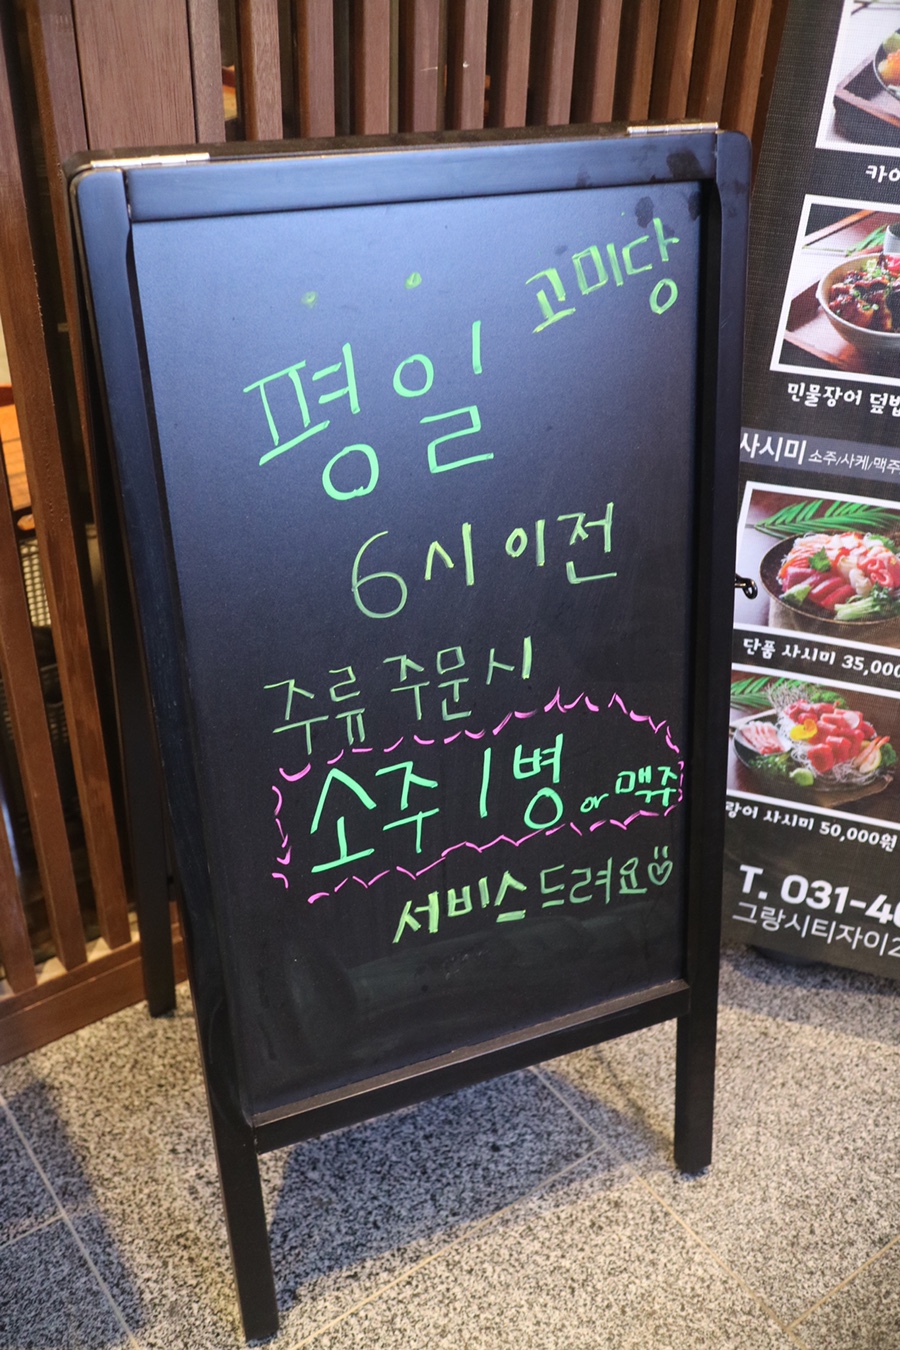 고미당
평일
6시 이전
주류 주문시
소주 1병 or 맥주
서비스 드려요
민물장어 덮밥
사시미 소주/사케/맥주
단품 사시미 35,000
사시미 50,000원
T. 031-4
그랑시티자이2